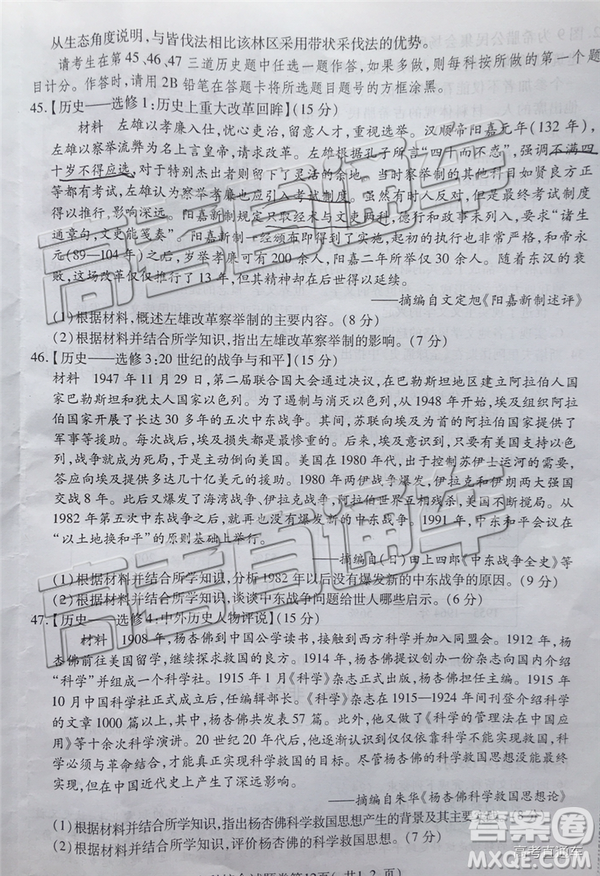 从生态角度说明,与皆伐法相比该林区采用带状采伐法的优势。
请考生在第 45、46、47 三道历史题中任选一题作答,如果多做,则每科按所做的第一题
目计分。作答时,请用 2B 铅笔在答题卡将所选题目题号的方框涂黑。
45.【历史——选修 1:历史上重大改革回眸】(15 分)
材料 左雄以孝廉入仕,忧心国事,敢言直谏,留意人才,重视选举。汉顺帝阳嘉元年(132 年),
左雄以察举流弊为名上言皇帝,请求改革。左雄根据孔子所言“四十而不惑”,强调不满四
十岁不得应选,对于特别杰出者则留下了灵活的余地。当时察举制的其他科目如贤良方正
等都有考试,左雄将察举孝廉也引入了考试制度。虽然有时人反对,但是最终考试制度
得以推行,影响深远。阳嘉新制规定只取经术与文吏两种,德行和政事未列入,要求“诸生
通章句,文吏能笺奏”。阳嘉新制实行后,起初的执行也非常严格,和帝永
元(89—104 年)之后,岁举孝廉可有 200 余人,阳嘉二年所举仅 30 余人。随着东汉的衰
败,这场改革仅仅推行了 13 年,但其精神却在后世得以延续。
——摘编自文定旭《阳嘉新制述评》
(1)根据材料,概述左雄改革察举制的主要内容。(8 分)
(2)根据材料并结合所学知识,指出左雄改革察举制的影响。(7 分)
46.【历史——选修 3:20 世纪的战争与和平】(15 分)
材料 1947 年 11 月 29 日,第二届联合国大会通过决议,在巴勒斯坦地区建立阿拉伯人国
家巴勒斯坦和犹太人国家以色列。为了遏制与消灭以色列,从 1948 年开始,埃及组织阿拉
伯国家开展了长达 30 多年的五次中东战争。其间,苏联向埃及以及其他阿拉伯国家提供了
军事等援助。每次战后,埃及损失最惨重,埃及意识到,只要与以色列开战,就是与美国开
战,战争就会无休无止,于是开始转向美国。美国在 1980 年代,出于控制苏伊士运河的需
要,答应向埃及提供多达几十亿美元的援助。1980 年代爆发了两伊战争,伊拉克和伊朗两大强国
交战 8 年。此后又爆发了海湾战争、伊拉克战争等,阿拉伯世界互相残杀,美国从中渔利。从
1982 年第五次中东战争之后,就没有爆发新的中东战争。1991 年,中东和平会议在
“以土地换和平”的基础上举行。
——摘编自(日)田上四郎《中东战争全史》等
(1)根据材料并结合所学知识,分析1982 年以后没有爆发新的中东战争的原因。(9 分)
(2)根据材料并结合所学知识,谈谈中东战争问题给世人哪些启示。(6 分)
47.【历史——选修4:中外历史人物评说】(15 分)
材料 1908 年,杨杏佛到中国公学读书,接触到西方科学并加入同盟会。1912 年,杨杏
佛前往美国留学,继续探求科学救国的真理。1914 年,杨杏佛参与创办一份杂志向国内介绍
“科学”并创立一个科学社。1915 年,杂志正式出版,定名为《科学》,杨杏佛任编辑。10
月中国科学社正式成立,任编辑部长。《科学》杂志在 1915—1924 年间刊登介绍科学
的文章 1000 篇以上,其中杨杏佛共发表 57 篇。此外,杨杏佛做了《科学的管理法在中国应
用》等十余次科学演讲。20 世纪 20 年代,杨杏佛意识到仅仅依靠科学不能实现救国,科学
必须与革命结合,科学才能充分发挥作用。尽管杨杏佛的科学救国思想最后没能
实现,但在中国近代史上产生了深远影响。
——摘编自朱华《杨杏佛科学救国思想论》
(1)根据材料并结合所学知识,指出杨杏佛科学救国思想产生的背景及其主要实践。(8 分)
(2)根据材料并结合所学知识,评价杨杏佛科学救国思想。(7 分)